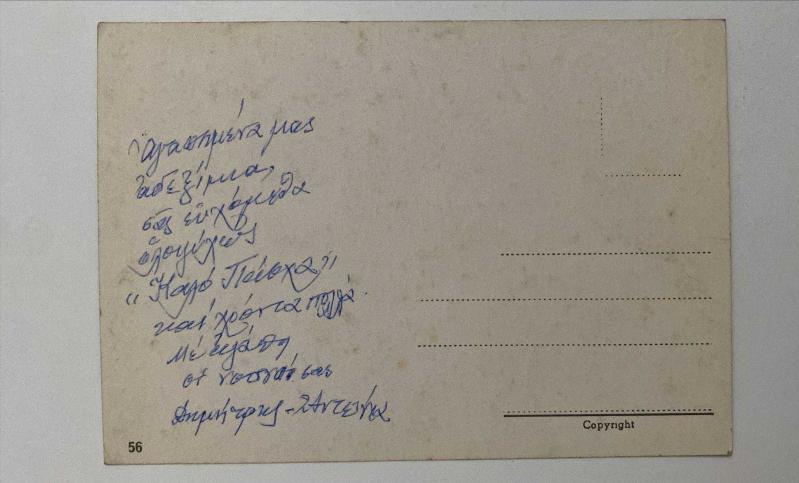 Ἀγαπημένα μας
ἀδεξίμια,
σᾶς εὐχόμεθα
ὁλοψύχως
"Καλό Πάσχα"
καί χρόνια πολλά.
Μέ ἀγάπη
οἱ νουνοί σας
Δημήτρης - Ἀντωνία
56
Copyright